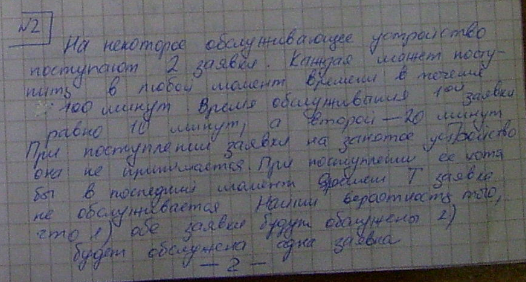 №2
На некоторое обслуживающее устройство
поступают 2 заявки. Каждая может посту-
пить в любой момент времени в течение
100 минут. Время обслуживания 1ой заявки
равно 10 минут, а второй – 20 минут
При поступлении заявки на занятое устройство
она не принимается. При поступлении ее хотя
бы в последний момент времени T заявка
не обслуживается Найти вероятность того,
что 1) обе заявки будут обслужены 2)
будет обслужена одна заявка
– 2 –